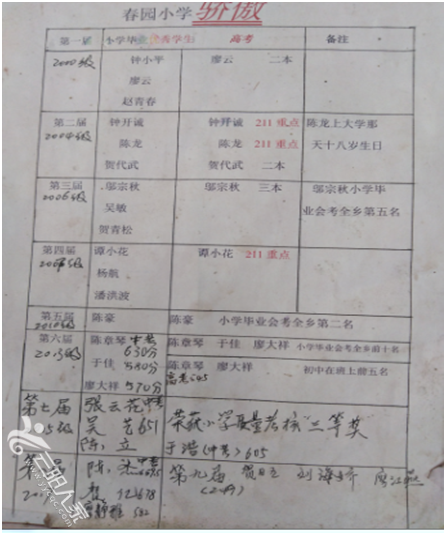 春园小学 骄傲
第一届 小学毕业优秀学生 高考 备注
2000级 钟小平 廖云 二本
廖云
赵青春
第二届 钟开诚 钟开诚 211重点 陈龙上大学那
2004级 陈龙 陈龙 211重点 天十八岁生日
贺代武 贺代武 二本
第三届 邬宗秋 邬宗秋 三本 邬宗秋小学毕
2006级 吴敏 业会考全乡第五名
贺青松
第四届 谭小花 谭小花 211重点
级 杨航
潘洪波
第五届 陈豪 陈豪 小学毕业会考全乡第二名
2010级
第六届 陈章琴 中考 陈章琴 于佳 廖大祥 小学毕业会考全乡前十名
2013级 630分
于佳 580分 陈章琴 廖大祥 初中在班上前五名
廖大祥 570分 高考545
第七届 张云花 中考
5级 吴艺 651 荣获小学质量考核"三等奖"
陈立 于浩(中考)605
第 届 陈 中考 第九届 刘
678
582
三明人家